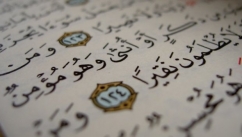 ١٢٣ وَمَن
كَرٍ أَوْ أُنثَىٰ وَهُوَ مُؤْمِنٌ
يُظْلَمُونَ نَقِيرًا ١٢٤ وَمَنْ
هُوَ مُحْسِنٌ